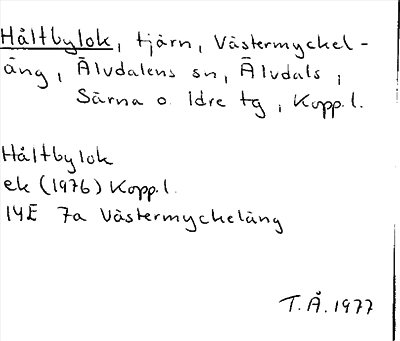 Håltbylok, tjärn, Västermyckel-
äng, Älvdalens sn, Älvdals,
Särna o. Idre tg, Kopp.l.
Håltbylok
ek (1976) Kopp.l.
14E 7a Västermyckeläng
T.Å. 1977